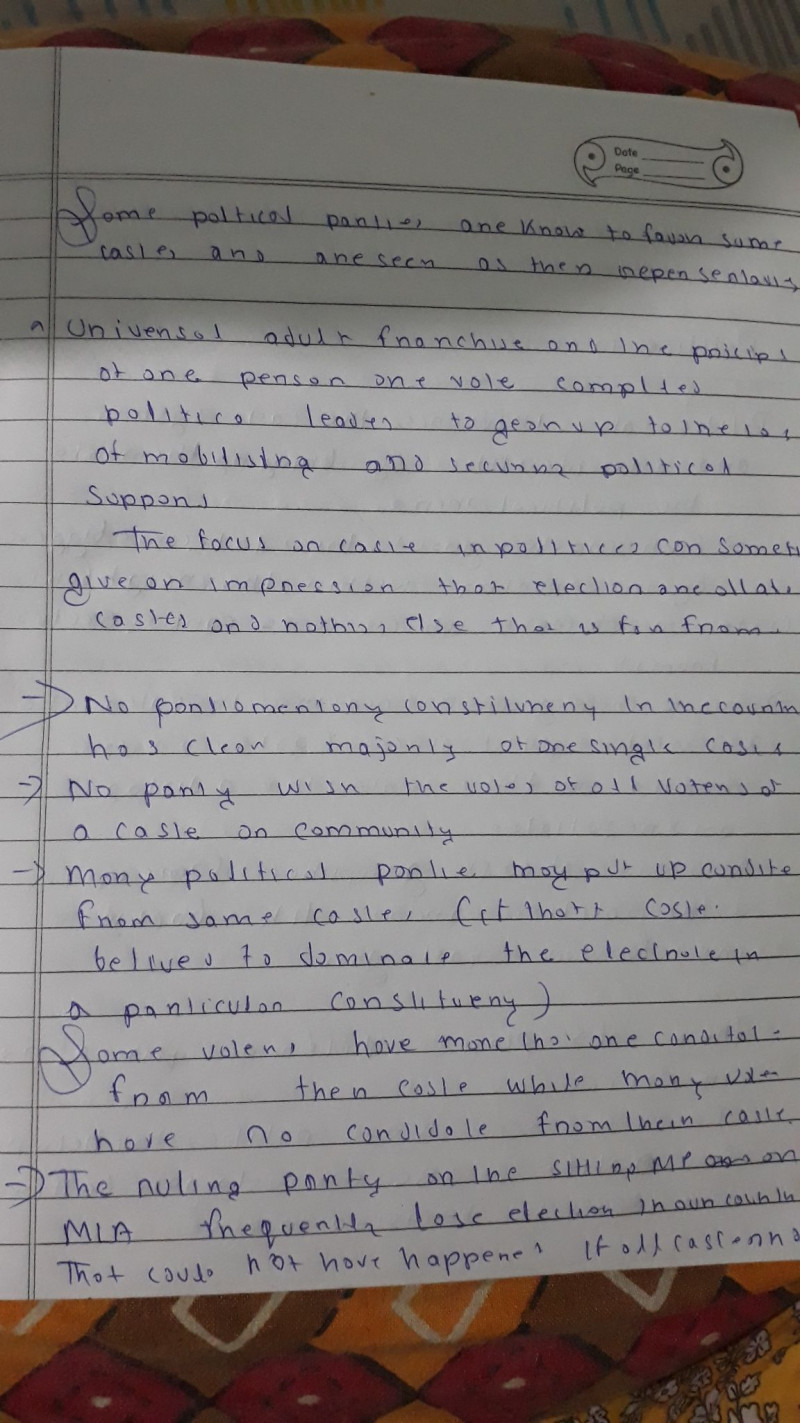 Date
Page
Some poltical panties are know to favon some
castes and are seen as then
a Univensol adult franchise and the
of one penson one vote
politica leaden to gear up to the
of mobilising and securing political
Suppont
The focus on caste in politics can
give an impnession that election are all
castes and nothing else that is fan from
→ No panliomentony constituency in the
has clean majority of one single caste
→ No panty wisn the votes of all votens of
a caste on community
→ Many political pantie may put up
from same caste, (if that caste
belives to dominate the in
a panticulan constitueny)
Some voten, have mone than one
from then caste while many
have no candidate from thein caste
→ The nuling panty on the sitting MP on
MLA fnequently lose election in oun
That could not have happened if all